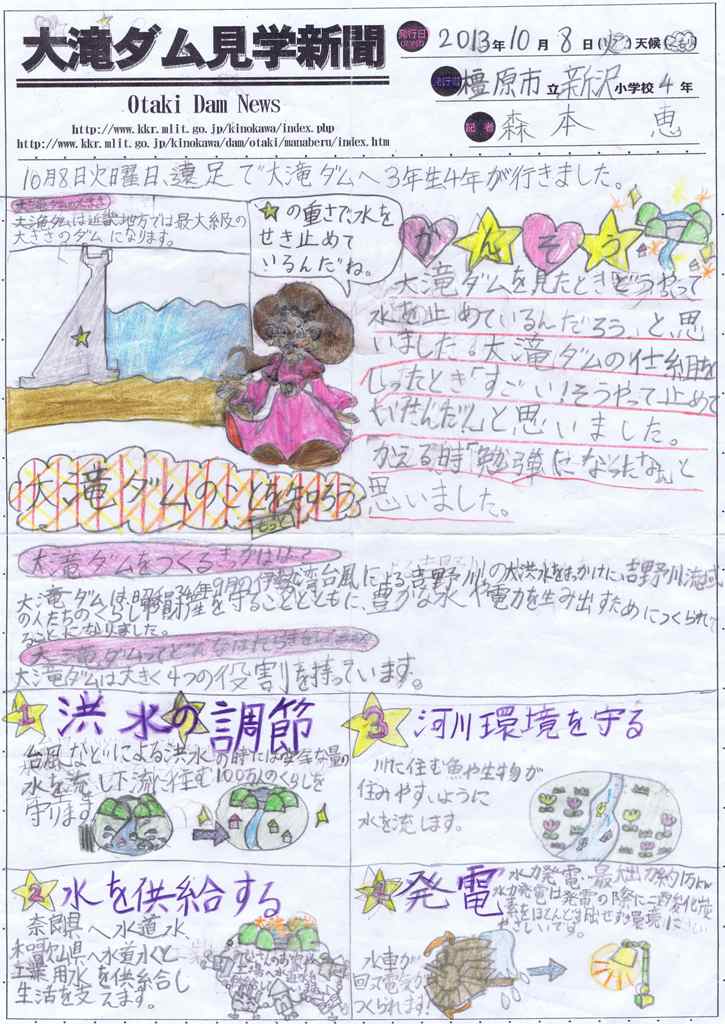 大滝ダム見学新聞
Otaki Dam News
http://www.kkr.mlit.go.jp/kinokawa/index.php
http://www.kkr.mlit.go.jp/kinokawa/dam/otaki/manaberu/index.htm
発行日 2013年10月8日(火)天候(くもり)
橿原市立新沢小学校4年
記者 森本 恵
10月8日火曜日、遠足で大滝ダムへ3年生4年が行きました。
大滝ダムの大きさ
大滝ダムは近畿地方では最大級の
大きさのダムになります。
★の重さで水を
せき止めて
いるんだね。
かんそう
大滝ダムを見たとき「どうやって
水を止めているんだろう」と思
いました。大滝ダムの仕組を
しったとき「すごい!そうやって止めて
いたんだ!」と思いました。
かえる時「勉強になったな」と
思いました。
大滝ダムのことを知ろう
大滝ダムをつくるきっかけは!?
大滝ダムは、昭和34年9月の伊勢湾台風による吉野川の大洪水をきっかけに、吉野川流域
の人たちのくらしや財産を守ることとともに、豊かな水や電力を生み出すためにつくられ
ることになりました。
大滝ダムってどんなはたらきをし
大滝ダムは大きく4つの役割を持っています。
1 洪水の調節
台風などによる洪水の時には安全な量の
水を流し下流に住む100万人のくらしを
守ります
3 河川環境を守る
川に住む魚や生物が
住みやすいように
水を流します。
2 水を供給する
奈良県へ水道水
和歌山県へ水道水と
工業用水を供給し
生活を支えます。
4 発電
水力発電、最大出力約1万kw
水力発電は発電の際に二酸化炭
素をほとんど出せず環境に
やさしいです。
水車が
回って電気が
つくられます!